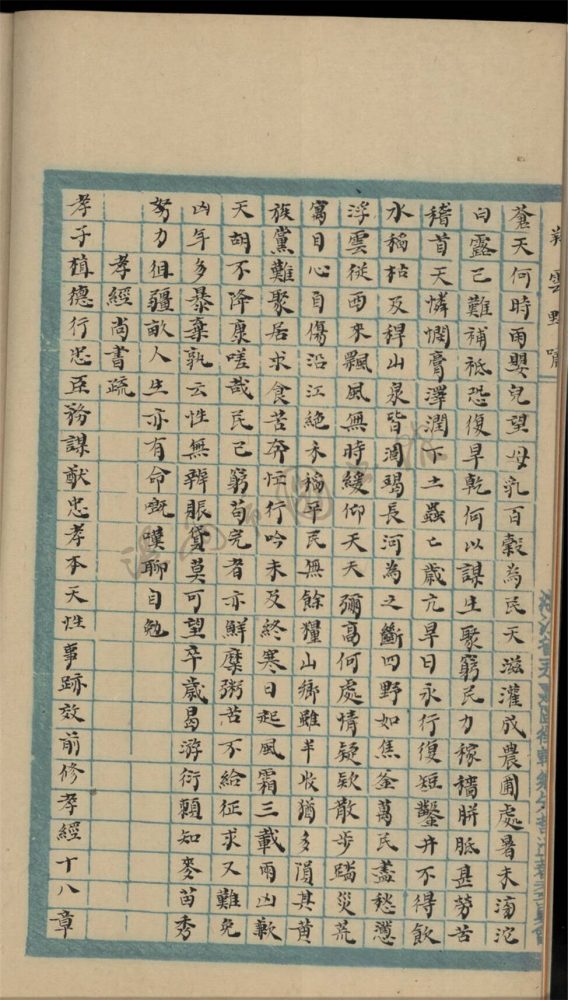 雲野
蒼天何時雨嬰兒望母乳百穀為民天滋灌成農圃處暑未滂沱
白露已難補祗恐復旱乾何以謀生聚窮民力稼穡胼胝甚勞苦
稽首天憐憫膏澤潤下土蟲亡歲亢旱日永行復短鑿井不得飲
水稻枯及稗山泉皆涸竭長河為之斷四野如焦釜萬民盡愁懣
浮雲從西來飄風無時緩仰天天彌高何處情疑欵散步踹災荒
寓目心自傷沿江絕禾稻平民無餘糧山鄉雖半收猶多隕其黃
族黨難聚居求食苦奔忙行吟未及終寒日起風霜三載兩凶歉
天胡不降稟嗟哉民已窮苟完者亦鮮糜粥苦不給征求又難免
凶年多暴棄孰云性無辨賑貸莫可望卒歲曷游衍願知麥苗秀
努力徂疆畝人生亦有命嘅嘆聊自勉
孝經尚書疏
孝子植德行忠臣務謀猷忠孝本天性事跡效前修孝經十八章